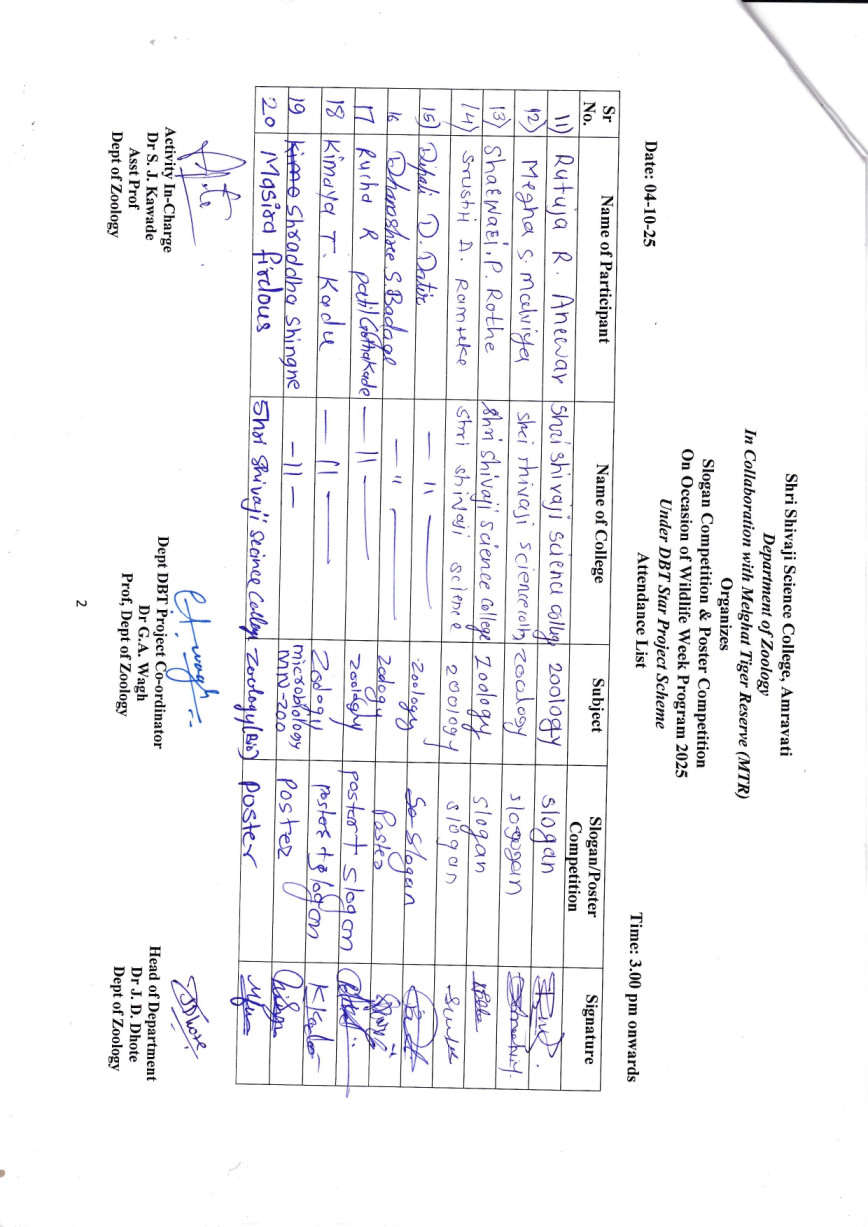 Shri Shivaji Science College, Amravati
Department of Zoology
In Collaboration with Melghat Tiger Reserve (MTR)
Organizes
Slogan Competition & Poster Competition
On Occasion of Wildlife Week Program 2025
Under DBT Star Project Scheme
Attendance List
Date: 04-10-25 Time: 3.00 pm onwards
Sr No. Name of Participant Name of College Subject Slogan/Poster Competition Signature
11) Rutuja R. Anewar Shri Shivaji Science College Zoology Slogan
12) Megha S. Malviya Shri Shivaji Science Zoology
13) P. Rothe Shri Shivaji Science College Zoology Slogan
14) Srushti D. Ramteke Shri Shivaji Science Zoology Slogan
15) Dipali D. Datir — 11 — Zoology Slogan
16 S. Badage — 11 — Zoology Poster
17 Rucha R Patil — 11 — Zoology Poster + Slogan
18 Kimaya T. Kadu — 11 — Zoology Poster + Slogan K Kadu
19 Shraddha Shingne — 11 — microbiology Poster
20 Masira Firdous Shri Shivaji Secince College Zoology (Bio) Poster
G.A. Wagh
JDDhote
Activity In-Charge Dept DBT Project Co-ordinator Head of Department
Dr S. J. Kawade Dr G.A. Wagh Dr J. D. Dhote
Asst Prof Prof, Dept of Zoology Dept of Zoology
Dept of Zoology
2